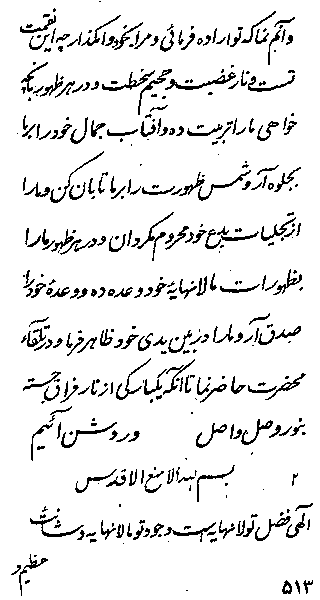 و آنم نما که تو اراده فرمائی و مرا بخود وا مگذار چه این نقمت
تست و نار غضبت و جحیم سخطت و در هر ظهور بآنچه
خواهی ما را تربیت ده و آفتاب جمال خود را بر ما
بجلوه آر و شمس ظهورت را بر ما تابان کن و ما را
از تجلیات بدیع خود محروم مگردان و در هر ظهور ما را
بظهورات مالانهایه خود وعده ده و وعدهٔ خود را
صدق آر و ما را در بین یدی خود ظاهر فرما و در تلقاء
محضرت حاضر نما تا آنکه یکبارگی از نار فراق جسته
بنور وصل واصل و روشن آئیم
۲ بسم الله الامنع الاقدس
الهی فضل تو لانهایه است وجود تو مالانهایه و شانت
عظیم و
۵۱۳